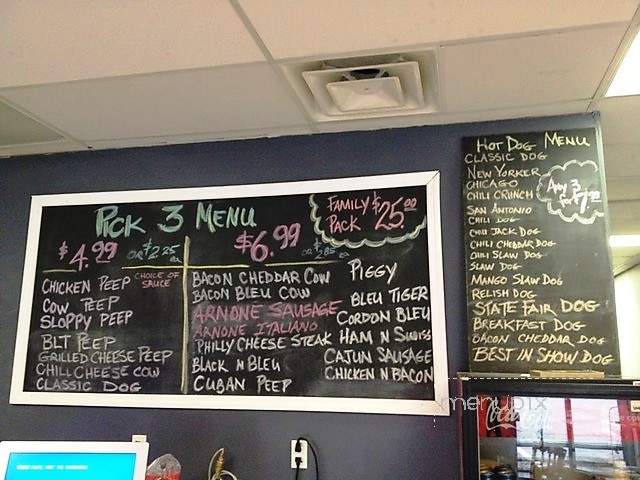 PICK 3 MENU
FAMILY
PACK $25.00
$4.99
OR $2.25 ea
$6.99
OR $2.85 ea
CHOICE OF
SAUCE
CHICKEN PEEP
COW PEEP
SLOPPY PEEP
BLT PEEP
GRILLED CHEESE PEEP
CHILI CHEESE COW
CLASSIC DOG
BACON CHEDDAR COW
BACON BLEU COW
ARNONE SAUSAGE
ARNONE ITALIANO
PHILLY CHEESE STEAK
BLACK N BLEU
CUBAN PEEP
PIGGY
BLEU TIGER
CORDON BLEU
HAM N SWISS
CAJUN SAUSAGE
CHICKEN N BACON
HOT DOG MENU
CLASSIC DOG
NEW YORKER
CHICAGO
CHILI CRUNCH
SAN ANTONIO
CHILI DOG
CHILI JACK DOG
CHILI CHEDDAR DOG
CHILI SLAW DOG
SLAW DOG
MANGO SLAW DOG
RELISH DOG
STATE FAIR DOG
BREAKFAST DOG
BACON CHEDDAR DOG
BEST IN SHOW DOG
Any 3
for $7.00
menupix
Coca-Cola